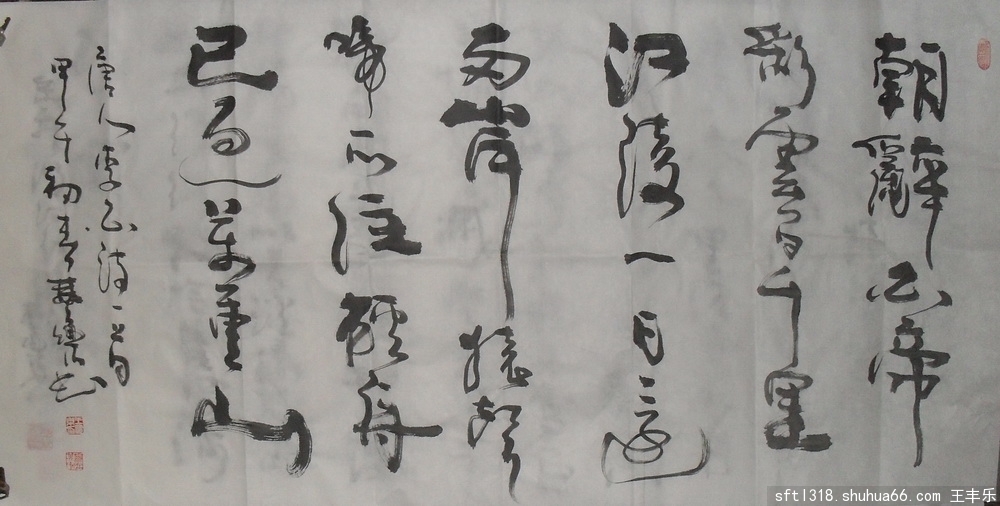 朝辭白帝
彩雲間千里
江陵一日還
兩岸猿聲
啼不住輕舟
已過萬重山
唐人李白詩一首
甲午初春
sftl318.shuhua66.com 王丰乐